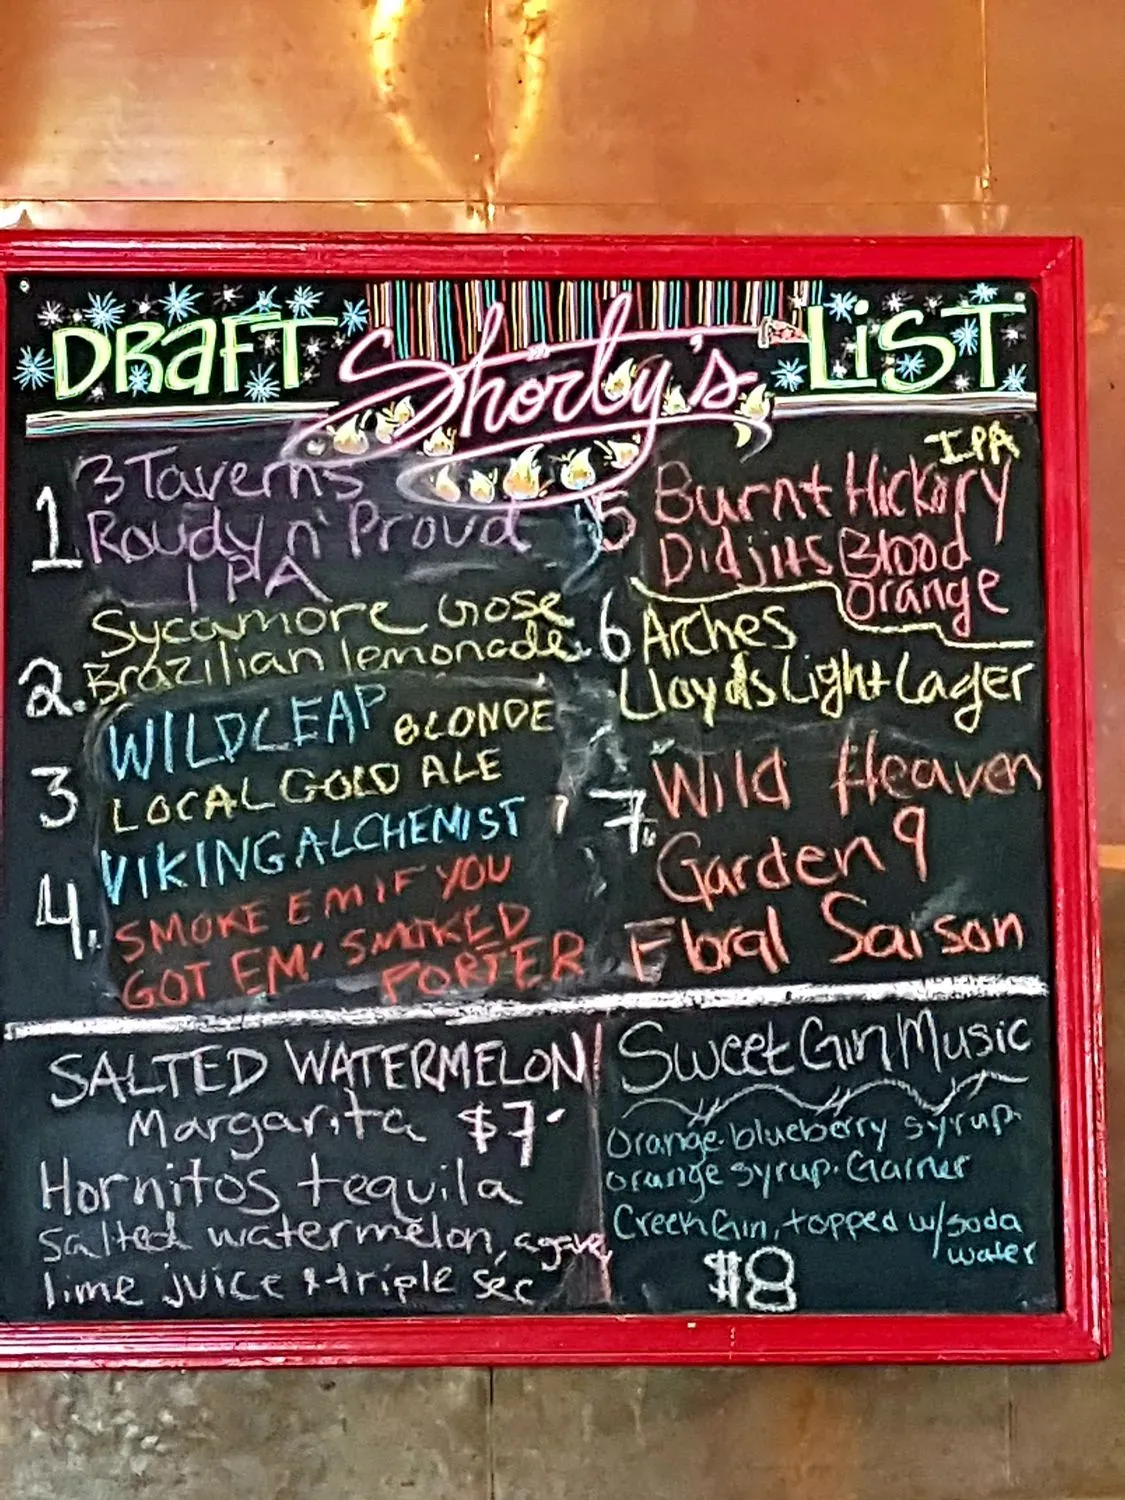 DRAFT Shorty's LiST
1 3 Taverns
Roudy n' Proud
IPA
2. Sycamore Gose
Brazilian lemonade
3 WILDLEAP BLONDE
LOCAL GOLD ALE
4. VIKING ALCHEMIST
SMOKE EM IF YOU
GOT EM' SMOKED
PORTER
IPA
5 Burnt Hickory
Didjits Blood
Orange
6 Arches
Lloyds Light Lager
7 Wild Heaven
Garden 9
Floral Saison
SALTED WATERMELON
Margarita $7.
Hornitos tequila
Salted watermelon, agave,
lime juice + triple sec
Sweet Gin Music
Orange-blueberry syrup.
orange syrup. Garner
Creek Gin, topped w/soda
water
$8